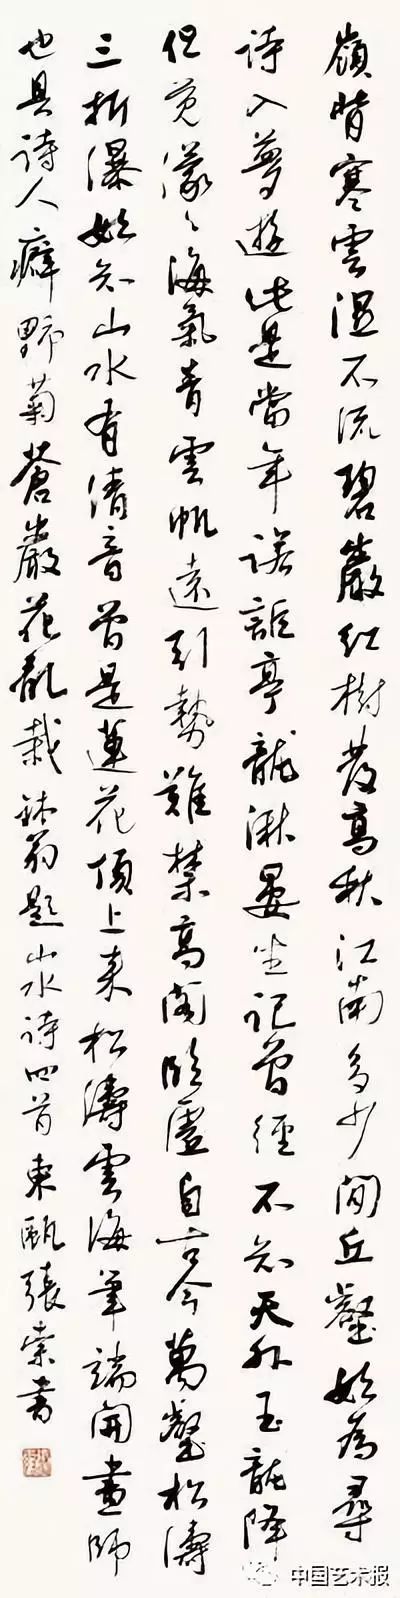 嶺背寒雲濕不流碧巖紅樹發高秋江南多少閒丘壑始為尋
詩入夢遊此是當年諾詎亭龍湫晏坐記曾經不知天外玉龍降
但覺濛々海氣青雲帆遠引勢難禁高閣臨虛自古今萬壑松濤
三折瀑始知山水有清音曾是蓮花頂上來松濤雲海筆端開畫師
也具詩人癖野菊蒼巖花亂栽缽翁題山水詩四首東甌張索書
中国艺术报